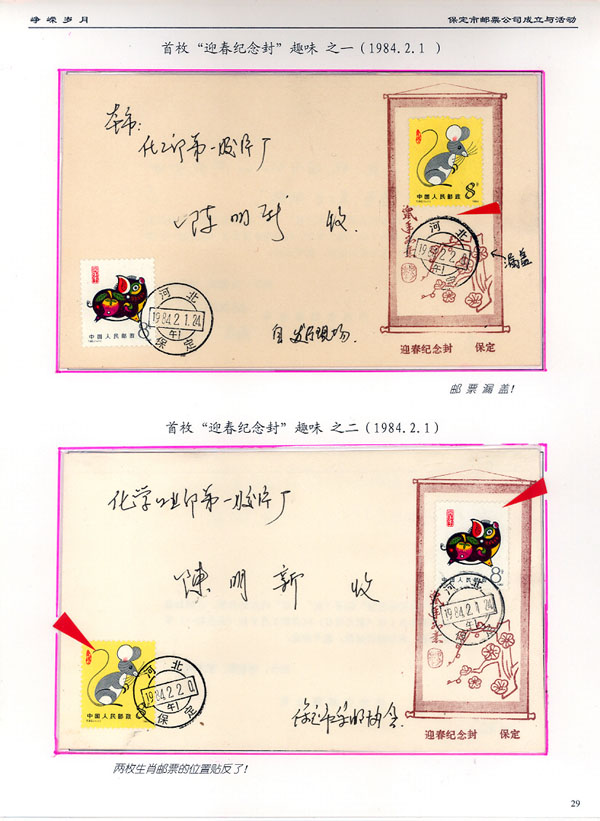 峥嵘岁月
保定市邮票公司成立与活动
首枚“迎春纪念封”趣味 之一 (1984.2.1 )
本市:
化工部第一胶片厂
陈明新 收
8分
中国人民邮政
鼠年
河北
1984.2.2.0
午1
保定
漏盖
中国人民邮政
河北
1984.2.1.24
午1
保定
自 发行现场.
迎春纪念封 保定
邮票漏盖!
首枚“迎春纪念封”趣味 之二 (1984.2.1)
化学工业部第一胶片厂
陳明新 收
8分
中国人民邮政
河北
1984.2.1.24
午1
保定
中国人民邮政
河北
1984.2.2.0
午1
保定
保定市集邮协会
迎春纪念封 保定
两枚生肖邮票的位置贴反了!
29